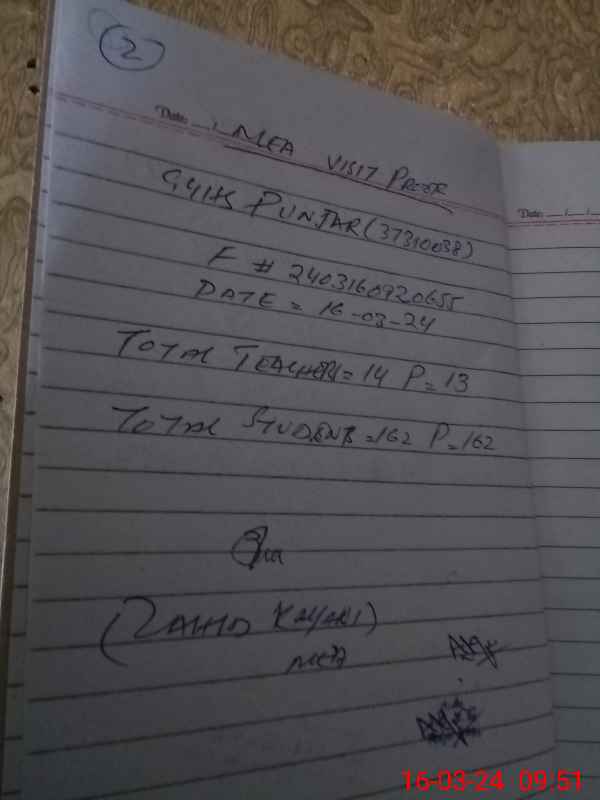 2
Date: MEA VISIT PROOF
Date:
GGHS PUNJAR (37310038)
F # 2403160920655
DATE = 16-03-24
TOTAL TEACHERS = 14 P = 13
TOTAL STUDENTS = 162 P = 162
(ZAHID KAYANI)
MEA
16-03-24 09:51